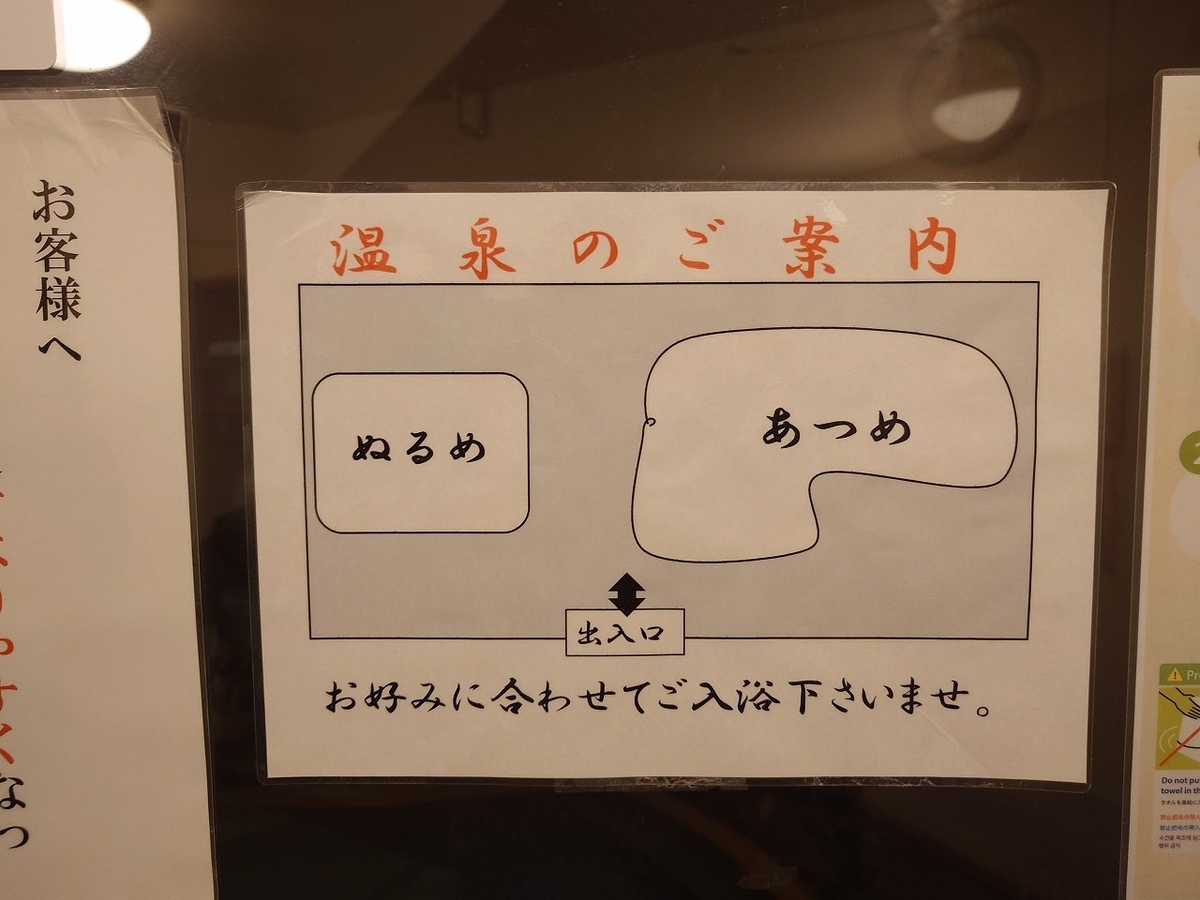 お客様へ
温泉のご案内
ぬるめ
あつめ
出入口
お好みに合わせてご入浴下さいませ。
なっ
Do not pu
towel in th